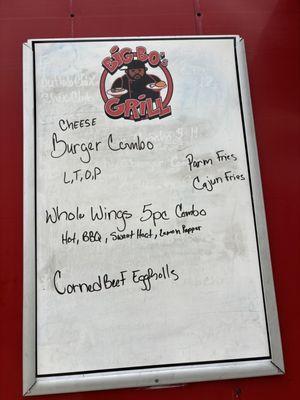 BIG-BO's
GRILL
CHEESE
Burger Combo
L,T,O,P
Parm Fries
Cajun Fries
Whole Wings 5pc Combo
Hot, BBQ, Sweet Heat, Lemon Pepper
Corned Beef EggRolls